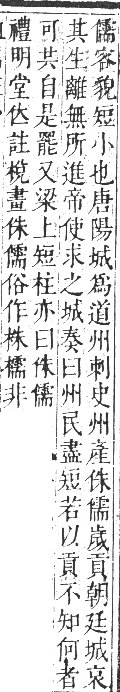 儒容貌短小也唐陽城爲道州刺史州產侏儒歲貢朝廷城哀
其生離無所進帝使求之城奏曰州民盡短若以貢不知何者
可共自是罷又梁上短柱亦曰侏儒
禮明堂位註梲畫侏儒俗作株檽非